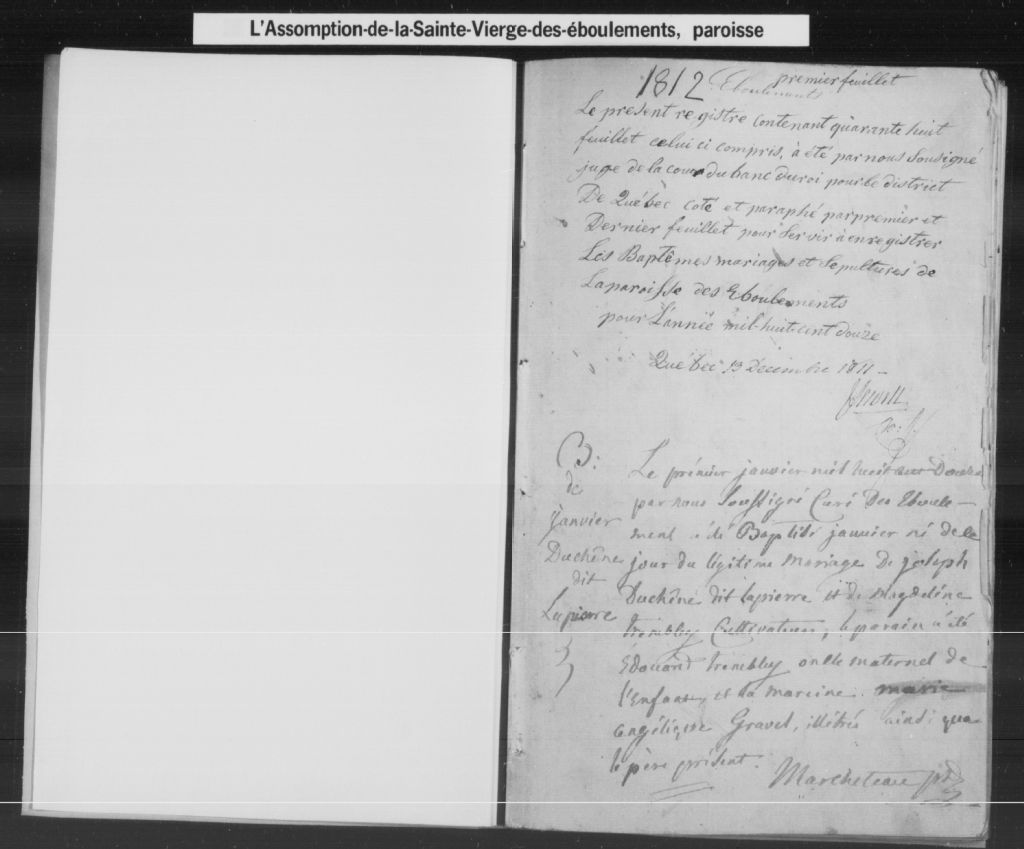 L'Assomption-de-la-Sainte-Vierge-des-éboulements, paroisse
1812 Eboulements premier feuillet
Le present registre contenant quarante huit
feuillet celui ci compris, à été par nous Sousigné
juge de la cour du banc du roi pour le district
De Québec coté et paraphé par premier et
Dernier feuillet pour Servir à enregistrer
Les Baptêmes mariages et Sepultures de
La paroisse des Eboulements
pour L'année mil-huit-cent douze
Québec 13 Décembre 1811 -
B:
de
janvier
Duchêne
dit
Lapierre
Le prémier janvier mil huit cent Douze
par nous Soussigné Curé Des Eboule-
ment a été Baptisé janvier né de ce
jour du légitime mariage De joseph
Duchêne dit lapierre et de Magdeléne
trembley Cultivateur, le parain a été
Edouard trembley oncle maternel de
l'Enfant, et la mareine marie
angélique Gravel, illétrés ainsi que
le père présent.
Marcheteau ptr